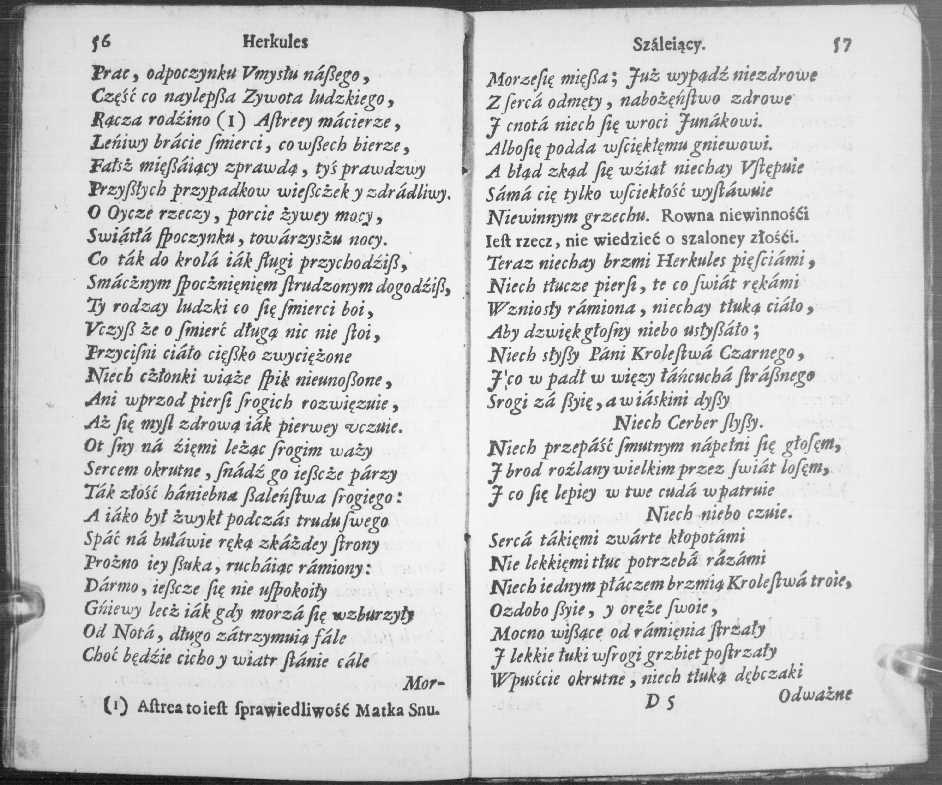 56 Herkules
Prac, odpoczynku Vmysłu náßego,
Część co naylepßa Zywota ludzkiego,
Rącza rodźino (1) Astreey mácierze,
Leńiwy brácie śmierci, co wßech bierze,
Fałsż mięßáiący zprawdą, tyś prawdzwy
Przyßłych przypadkow wießcżek y zdrádliwy.
O Oycze rzeczy, porcie żywey mocy,
Swiátłá spoczynku, towárzysżu nocy.
Co ták do krolá iák sługi przychodźiß,
Smácżnym spocżnięnięm strudzonym dogodźiß,
Ty rodzay ludzki co się śmierci boi,
Vczyß że o śmierć długą nic nie stoi,
Przyciśni ciáło cięßko zwyciężone
Niech cżłonki wiąże spik nieunoßone,
Ani wprzod pierśi srogich rozwięzuie,
Aż się mysl zdrową iák pierwey vczuie.
Ot sny ná źięmi leżąc srogim waży
Sercem okrutne, snádź go ießcże párzy
Ták złość hániebna ßaleństwa srogiego:
A iáko był żwykł podczás trudu swego
Spáć ná buławie ręką zkáżdey strony
Prożno iey ßuka, rucháiąc rámiony:
Dármo, ießcze się nie uspokoiły
Gniewy lecż iák gdy morzá się wzburzyły
Od Notá, długo zátrzymuią fále
Choć będźie cicho y wiatr stánie cále
Mor-
(1) Astrea to iest sprawiedliwość Matka Snu.
Száleiący. 57
Morze się mięßa; Już wypądź niezdrowe
Z sercá odmęty, nabożęństwo zdrowe
J cnotá niech się wroci Junákowi.
Albo się podda wściekłęmu gniewowi.
A błąd zkąd się wźiął niechay Vstępuie
Sámá cię tylko wściekłość wystáwuie
Niewinnym grzechu. Rowna niewinnośći
Iest rzecz, nie wiedzieć o szaloney złośći.
Teraz niechay brzmi Herkules pięsciámi,
Niech tłucze pierśi, te co świát rękámi
Wzniosły rámiona, niechay tłuką ciáło,
Aby dzwięk głosny niebo usłyßáło;
Niech słyßy Páni Krolestwá Czarnego,
J co w padł w więzy łáńcuchá stráßnego
Srogi zá ßyię, a w iáskini dyßy
Niech Cerber slyßy.
Niech przepáść smutnym nápełni się głosęm,
J brod roźlany wielkim przez świát losęm,
J co się lepiey w twe cudá wpatruie
Niech niebo czuie.
Sercá tákięmi zwárte kłopotámi
Nie lekkięmi tłuc potrzebá rázámi
Niech iednym płáczem brzmią Krolestwá troie,
Ozdobo ßyie, y oręże swoie,
Mocno wißące od rámięnia strzały
J lekkie łuki w srogi grzbiet postrzały
Wpuśćcie okrutne, niech tłuką dębczaki
D 5 Odważne